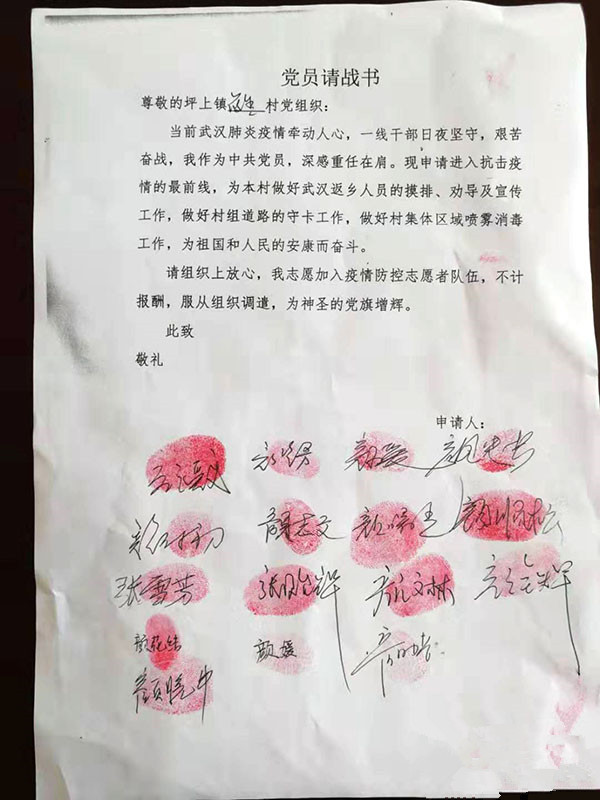 党员请战书
尊敬的坪上镇 村党组织：
当前武汉肺炎疫情牵动人心，一线干部日夜坚守，艰苦
奋战，我作为中共党员，深感重任在肩。现申请进入抗击疫
情的最前线，为本村做好武汉返乡人员的摸排、劝导及宣传
工作，做好村组道路的守卡工作，做好村集体区域喷雾消毒
工作，为祖国和人民的安康而奋斗。
请组织上放心，我志愿加入疫情防控志愿者队伍，不计
报酬，服从组织调遣，为神圣的党旗增辉。
此致
敬礼
申请人：
颜志文
张雪芳
颜媛
颜晓中